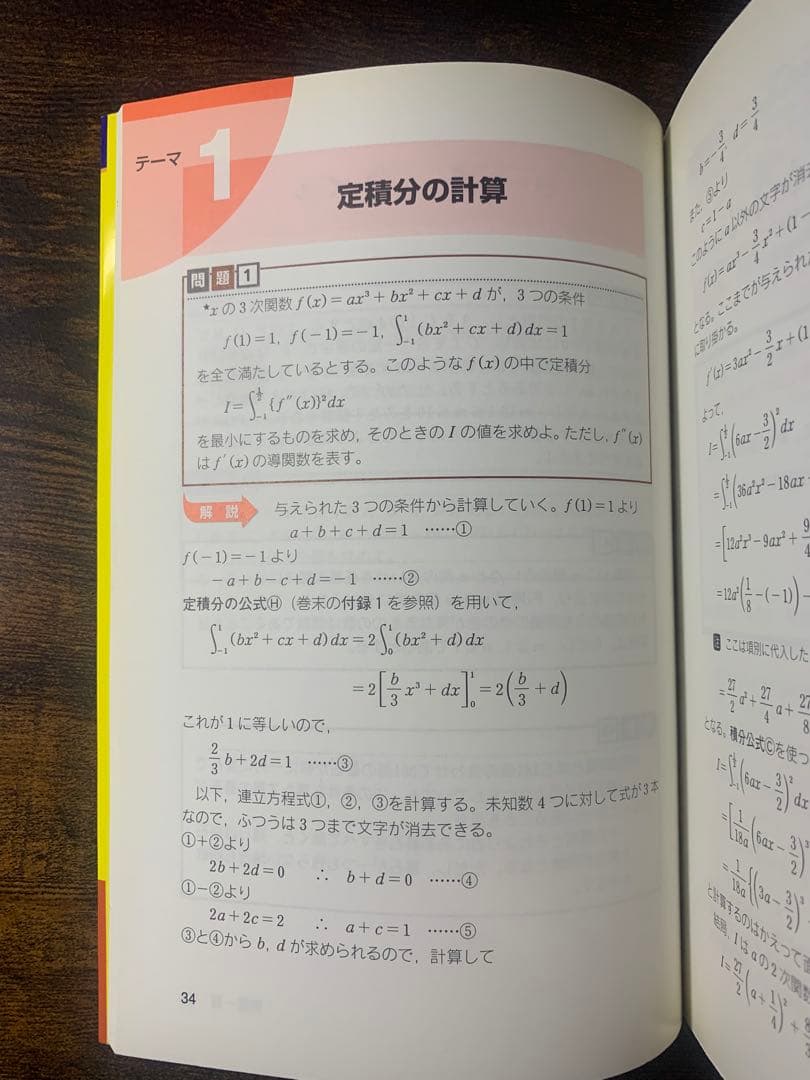 テーマ 1
定積分の計算
問題 1
*xの3次関数 f(x)=ax³+bx²+cx+d が，3つの条件
f(1)=1, f(−1)=−1, ∫₋₁¹(bx²+cx+d)dx=1
を全て満たしているとする。このような f(x) の中で定積分
I=∫₋₁^{1/2}{f″(x)}²dx
を最小にするものを求め，そのときの I の値を求めよ。ただし，f″(x)
は f′(x) の導関数を表す。
解説 与えられた3つの条件から計算していく。f(1)=1より
a+b+c+d=1 ……①
f(−1)=−1より
−a+b−c+d=−1 ……②
定積分の公式Ⓗ（巻末の付録1を参照）を用いて，
∫₋₁¹(bx²+cx+d)dx=2∫₀¹(bx²+d)dx
=2[b/3 x³+dx]₀¹=2(b/3+d)
これが1に等しいので，
2/3 b+2d=1 ……③
以下，連立方程式①，②，③を計算する。未知数4つに対して式が3本
なので，ふつうは3つまで文字が消去できる。
①+②より
2b+2d=0 ∴ b+d=0 ……④
①−②より
2a+2c=2 ∴ a+c=1 ……⑤
③と④から b, d が求められるので，計算して
34
b=−3/4, d=3/4
また，⑤より
c=1−a
このように a 以外の文字が消
f(x)=ax³−3/4 x²+(1−
となる。ここまでが与えられた
に取り掛かる。
f′(x)=3ax²−3/2 x+(1
よって，
I=∫₋₁^{1/2}(6ax−3/2)²dx
=∫₋₁^{1/2}(36a²x²−18ax
=[12a²x³−9ax²+9/4
=12a²(1/8−(−1))−
ここは項別に代入した
=27/2 a²+27/4 a+27/8
となる。積分公式Ⓒを使つ
I=∫₋₁^{1/2}(6ax−3/2)²dx
=[1/18a(6ax−3/2)³
=1/18a{(3a−3/2)³
と計算するのはかえって
結局，I は a の2次関数
I=27/2(a+1/4)²+